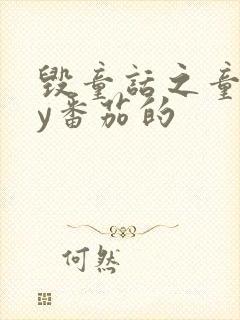 毁童话之童
y番茄的
何然